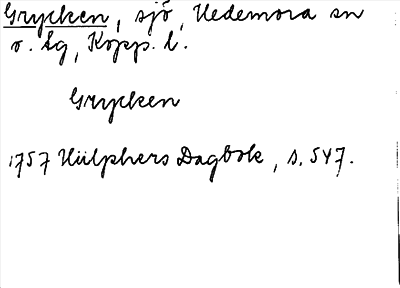 Grycken, sjö, Hedemora sn
o. Lg, Kopp. l.
Grycken
1757 Hülphers Dagbok, s. 547.